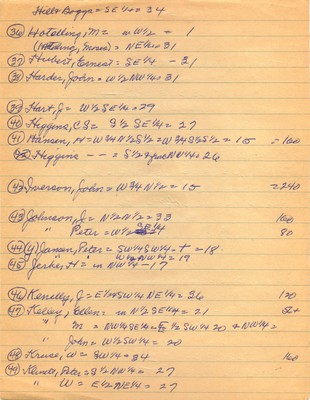 Hill + Boggs = SE¼ = 34
(36) Hotelling, M = in W½ = 1
(Hotelling, Moses) = NE¼ = 31
(37) Hubert, Earnest = SE¼ - 21
(38) Harder, John = W½NW¼ = 31
(39) Hart, J = W½ SE¼ = 29
(40) Higgins, CS = S½ SE¼ = 27
(41) Hansen, H = W¾N½S½ = W¾S½S½ = 15 = 160
Higgins -- = S½ + NW¼ = 26
(42) Iverson, John = W¾N½ = 15 = 240
(43) Johnson, J = N½N½ = 33 160
" Peter = W½ SE¼ 21 80
(44) (y) Jansen, Peter = SW¼SW¼ = + = 18
W½NW¼ = 19
(45) Jerke, H = in NW¼ - 17
(46) Kenelly, J = E½ SW¼ NE¼ = 26 120
(47) Kelsey, Ellen = in N½SE¼ = 21
" M = NW¼SE¼ = E½SW¼ 20 + NW¼ =
" John = W½SW¼ = 20
(48) Kruse, W = SW¼ = 34 160
(49) Klindt, Peter = S½NW¼ = 27
" W = E½NE¼ = 27